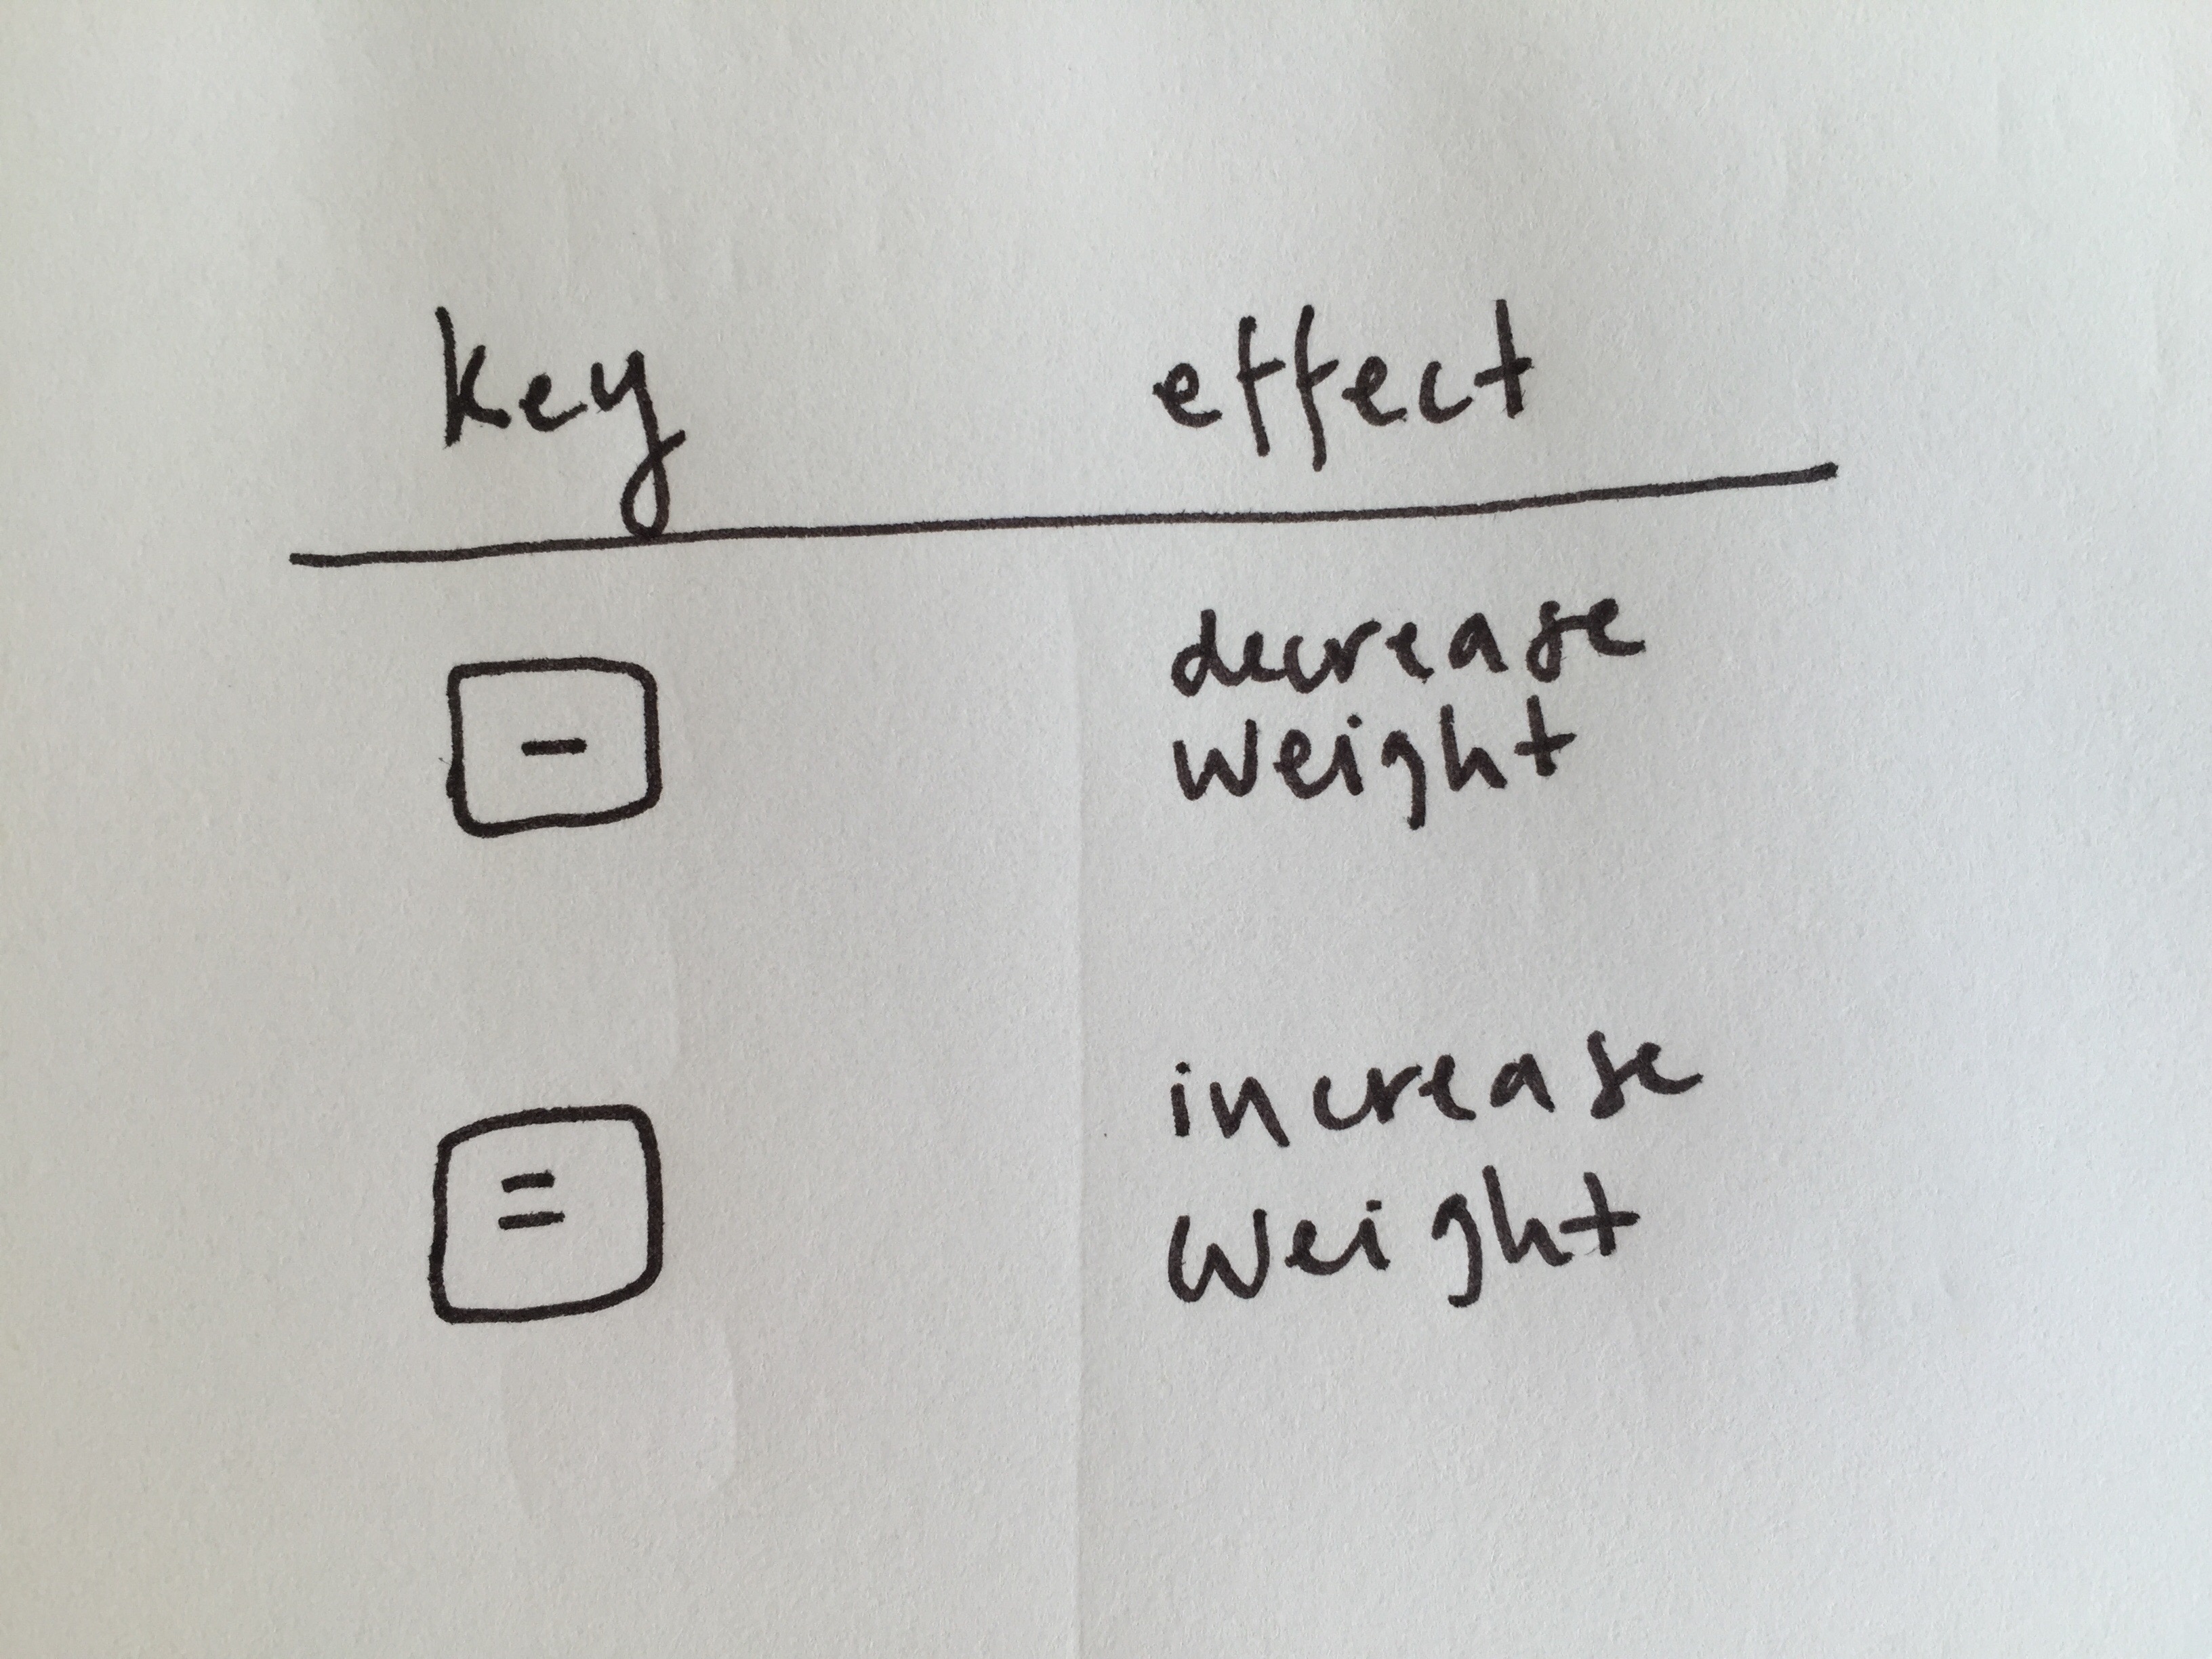 key effect
- decrease
weight
= increase
weight